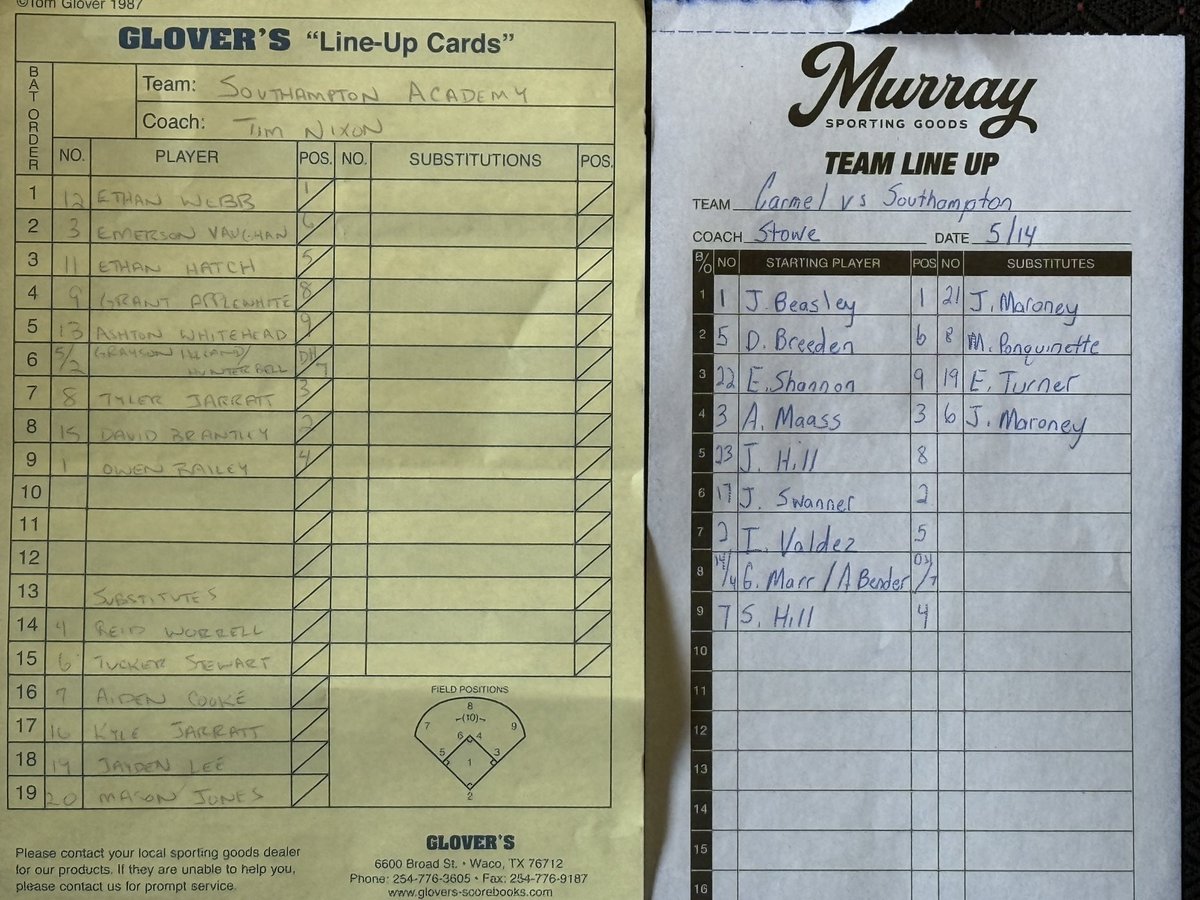 ©Tom Glover 1987
GLOVER'S "Line-Up Cards"
BAT ORDER
Team: SOUTHAMPTON ACADEMY
Coach: TIM NIXON
NO. PLAYER POS. NO. SUBSTITUTIONS POS.
1 12 ETHAN WEBB 1
2 3 EMERSON VAUGHAN 6
3 11 ETHAN HATCH 5
4 9 GRANT APPLEWHITE 8
5 13 ASHTON WHITEHEAD 9
6 5/2 GRAYSON / HUNTER BELL DH/7
7 8 TYLER JARRATT 3
8 15 DAVID BRANTLEY 2
9 1 OWEN BAILEY 4
10
11
12
13 SUBSTITUTES
14 4 REID WORRELL
15 6 TUCKER STEWART
16 7 AIDEN COOKE
17 16 KYLE JARRATT
18 14 JAYDEN LEE
19 20 MASON JONES
FIELD POSITIONS
8
7 -(10)- 9
6 4
5 3
1
2
Please contact your local sporting goods dealer
for our products. If they are unable to help you,
please contact us for prompt service.
GLOVER'S
6600 Broad St. • Waco, TX 76712
Phone: 254-776-3605 • Fax: 254-776-9187
www.glovers-scorebooks.com
Murray
SPORTING GOODS
TEAM LINE UP
TEAM Carmel vs Southampton
COACH Stowe DATE 5/14
B/O NO STARTING PLAYER POS NO SUBSTITUTES
1 1 J. Beasley 1 21 J. Maroney
2 5 D. Breeden 6 8 M. Ponquinette
3 22 E. Shannon 9 19 E. Turner
4 3 A. Maass 3 6 J. Maroney
5 23 J. Hill 8
6 17 J. Swanner 2
7 2 I. Valdez 5
8 14/4 G. Marr / A Bender DH/7
9 7 S. Hill 4
10
11
12
13
14
15
16